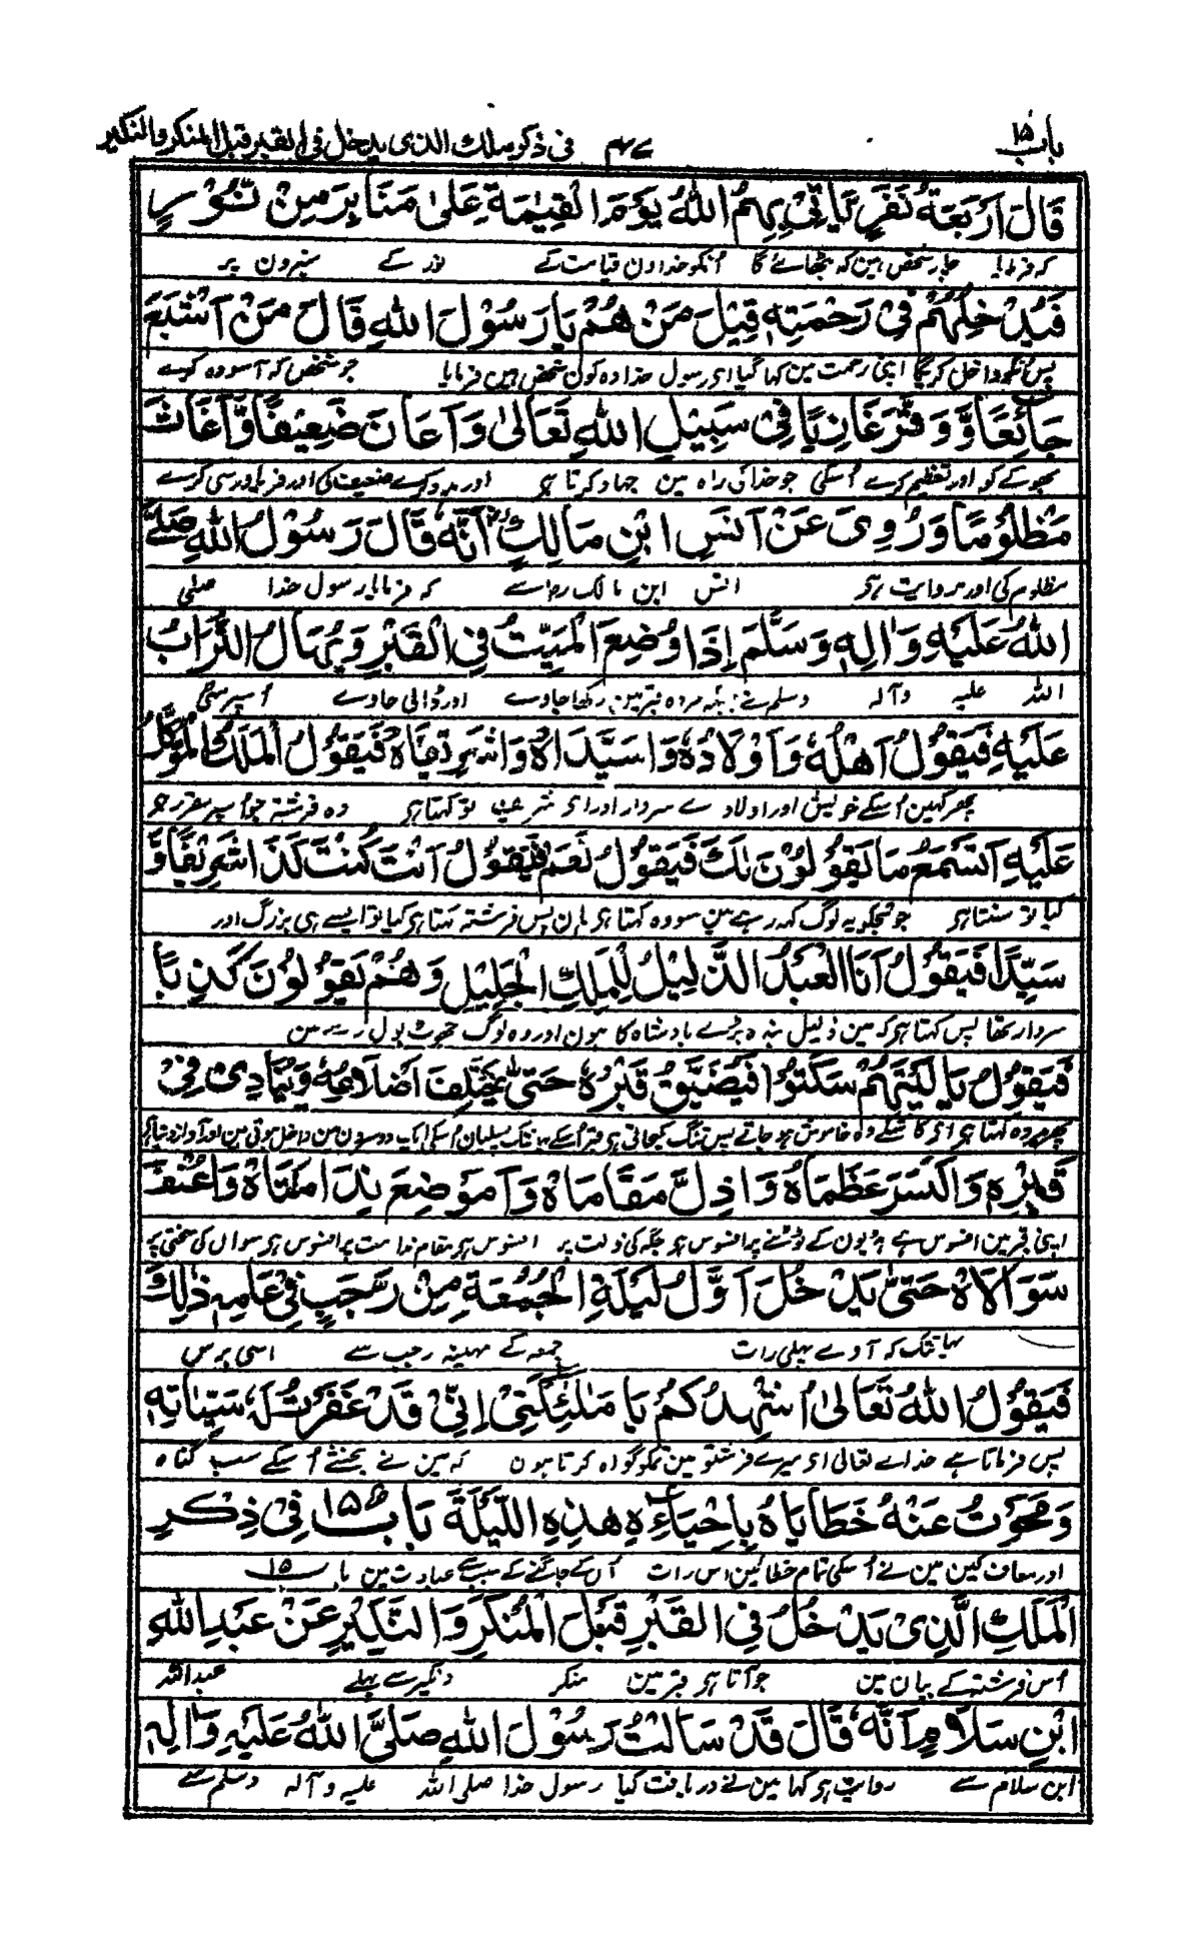 باب ۱۵ فی ذکر ملك الذی یدخل فی القبر قبل المنکر والنکیر
قَالَ اَرْبَعَةُ نَفَرٍ یَأْتِیْ بِهِمُ اللهُ یَوْمَ الْقِیٰمَةِ عَلیٰ مَنَابِرَ مِنْ نُّوْرٍ
کہ فرمایا چار شخص ہین کہ بٹھائے گا اُنکو خدا دن قیامت کے نور کے منبرون پر
فَیُدْخِلُهُمْ فِیْ رَحْمَتِهٖ قِیْلَ مَنْ هُمْ یَا رَسُوْلَ اللهِ قَالَ مَنْ اَشْبَعَ
پس اُنکو داخل کریگا اپنی رحمت مین کہا گیا ای رسول خدا وہ کون شخص ہین فرمایا جو شخص کہ آسودہ کرے
جَائِعًا وَّ وَقَّرَ غَازِیًا فِیْ سَبِیْلِ اللهِ تَعَالیٰ وَ اَعَانَ ضَعِیْفًا وَّ اَغَاثَ
بھوکے کو اور تعظیم کرے اُسکی جو خدا کی راہ مین جہاد کرتا ہی اور مدد کرے ضعیف کی اور فریاد رسی کرے
مَظْلُوْمًا وَ رُوِیَ عَنْ اَنَسِ ابْنِ مَالِكٍ اَنَّهٗ قَالَ رَسُوْلُ اللهِ صَلَّی
مظلوم کی اور روایت ہی انس ابن مالک سے کہ فرمایا رسول خدا صلی
اللهُ عَلَیْهِ وَاٰلِهٖ وَسَلَّمَ اِذَا وُضِعَ الْمَیِّتُ فِی الْقَبْرِ وَ یُهَالُ التُّرَابُ
اللہ علیہ وآلہ وسلم نے جب مردہ قبر مین رکھا جاوے اور ڈالی جاوے اُسپر مٹی
عَلَیْهِ فَیَقُوْلُ اَهْلُهٗ وَ اَوْلَادُهٗ وَا سَیِّدَاهُ وَا شَرِیْفَاهُ فَیَقُوْلُ الْمَلَكُ الْمُوَکَّلُ
پھر کہین اُسکے خویش اور اولاد اے سردار اور ای شریف تو کہتا ہی وہ فرشتہ جو اُسپر مقرر ہی
عَلَیْهِ اَتَسْمَعُ مَا یَقُوْلُوْنَ لَكَ فَیَقُوْلُ نَعَمْ فَیَقُوْلُ اَنْتَ کُنْتَ کَذَا شَرِیْفًا وَّ
کیا تو سنتا ہی جو تجکو یہ لوگ کہہ رہے ہین سو وہ کہتا ہی ہان پس فرشتہ کہتا ہی کیا تو ایسے ہی بزرگ اور
سَیِّدًا فَیَقُوْلُ اَنَا الْعَبْدُ الذَّلِیْلُ لِلْمَلِكِ الْجَلِیْلِ وَهُمْ یَقُوْلُوْنَ کَذِبًا
سردار تھا پس کہتا ہی کہ مین ذلیل بندہ بڑے بادشاہ کا ہون اور وہ لوگ جھوٹ بول رہے مین
فَیَقُوْلُ یَا لَیْتَهُمْ سَکَتُوْا فَیُضَیَّقُ قَبْرُهٗ حَتّیٰ یَخْتَلِفَ اَضْلَاعُهٗ وَ یُنَادِیْ فِیْ
پھر مردہ کہتا ہی ای کاشکے وہ خاموش ہو جاتے پس تنگ کیجاتی ہی قبر اُسکی یہانتک پسلیان اُسکی ایک دوسرون مین داخل ہوتی ہین اور آواز دیتا ہی
قَبْرِهٖ وَا کَسْرَ عَظْمَاهُ وَا ذِلَّ مَقَامَاهْ وَا مَوْضِعَ نِدَامَتَاهْ وَا عُنْفَ
اپنی قبر مین افسوس ہے ہڈیون کے ٹوٹنے پر افسوس ہی جگہ کی ذلت پر افسوس ہی مقام ندامت پر افسوس ہی سوال کی سختی پر
سَوَالَاهْ حَتّیٰ یَدْخُلَ اَوَّلُ لَیْلَةِ الْجُمُعَةِ مِنْ رَّجَبٍ فِیْ عَامِهٖ ذٰلِكَ
یہانتک کہ آوے پہلی رات جمعہ کے مہینہ رجب سے اسی برس
فَیَقُوْلُ اللهُ تَعَالیٰ اُشْهِدُکُمْ یَا مَلٰئِکَتِیْ اِنِّیْ قَدْ غَفَرْتُ لَهٗ سَیِّئَاتِهٖ
پس فرماتا ہے خداے تعالی ای میرے فرشتو مین تمکو گواہ کرتا ہون کہ مین نے بخشے اُسکے سب گناہ
وَ مَحَوْتُ عَنْهُ خَطَایَاهُ بِاِحْیَائِهٖ هٰذِهِ اللَّیْلَةَ بَاب ۱۵ فِیْ ذِکْرِ
اور معاف کین مین نے اُسکی تمام خطائین اس رات اُس کے جاگنے کے سبب سے عبادت مین باب ۱۵
الْمَلَكِ الَّذِیْ یَدْخُلُ فِی الْقَبْرِ قَبْلَ الْمُنْکَرِ وَ النَّکِیْرِ عَنْ عَبْدِ اللهِ
اُس فرشتہ کے بیان مین جو آتا ہی قبر مین منکر ونکیر سے پہلے عبداللہ
ابْنِ سَلَامٍ اَنَّهٗ قَالَ قَدْ سَاَلْتُ رَسُوْلَ اللهِ صَلَّی اللهُ عَلَیْهِ وَاٰلِهٖ
ابن سلام سے روایت ہی کہا مین نے دریافت کیا رسول خدا صلی اللہ علیہ وآلہ وسلم سے